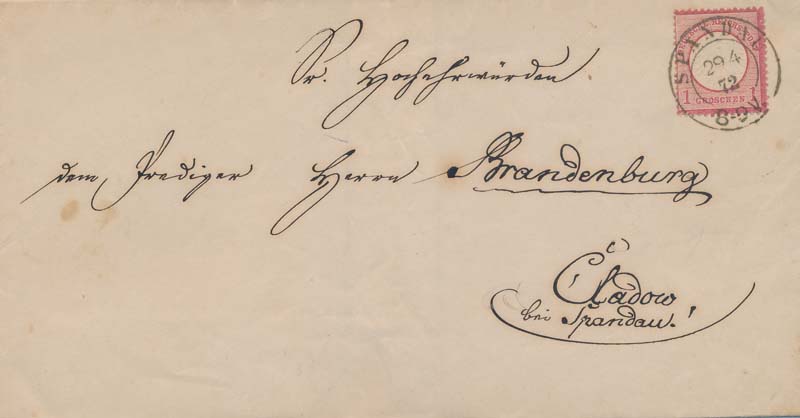 SPANDAU
29 4
72
8-9 V
1 GROSCHEN 1
Sr. Hochehrwürden
dem Prediger Herrn Brandenburg
Cladow
bei Spandau.